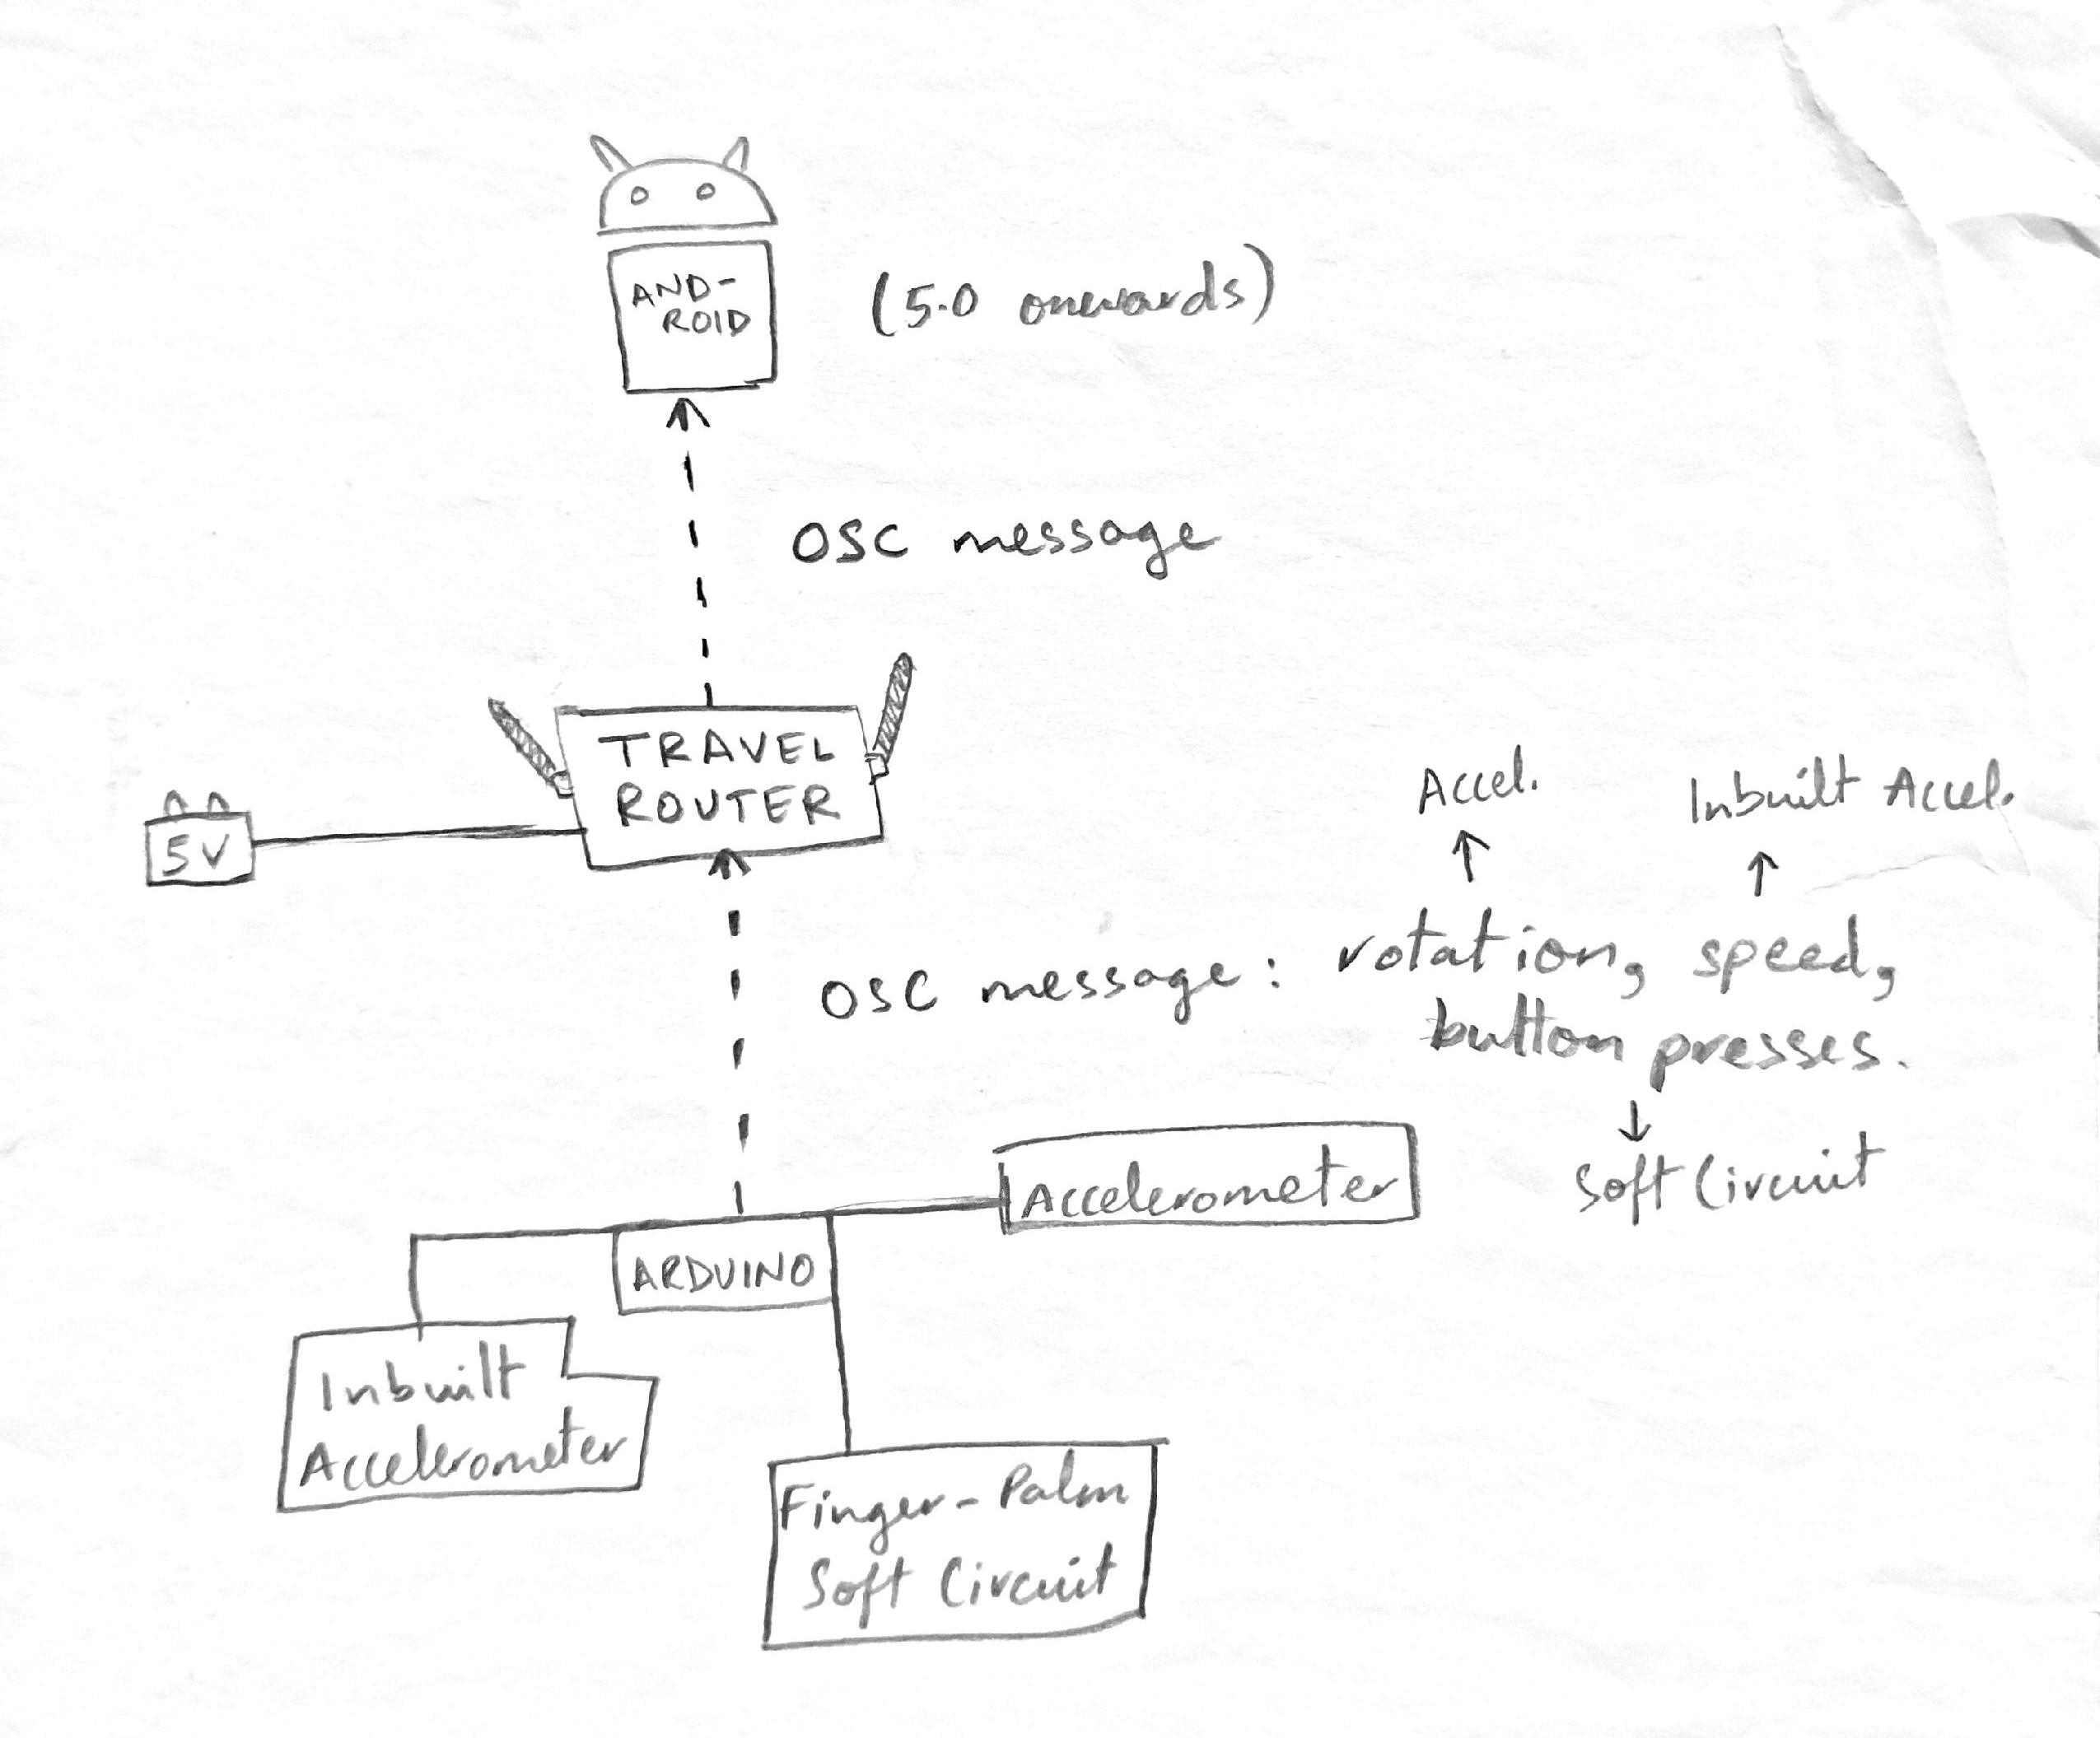 AND-
ROID
(5.0 onwards)
OSC message
TRAVEL
ROUTER
5V
Accel.
Inbuilt Accel.
OSC message: rotation, speed,
button presses.
Soft Circuit
Accelerometer
ARDUINO
Inbuilt
Accelerometer
Finger-Palm
Soft Circuit